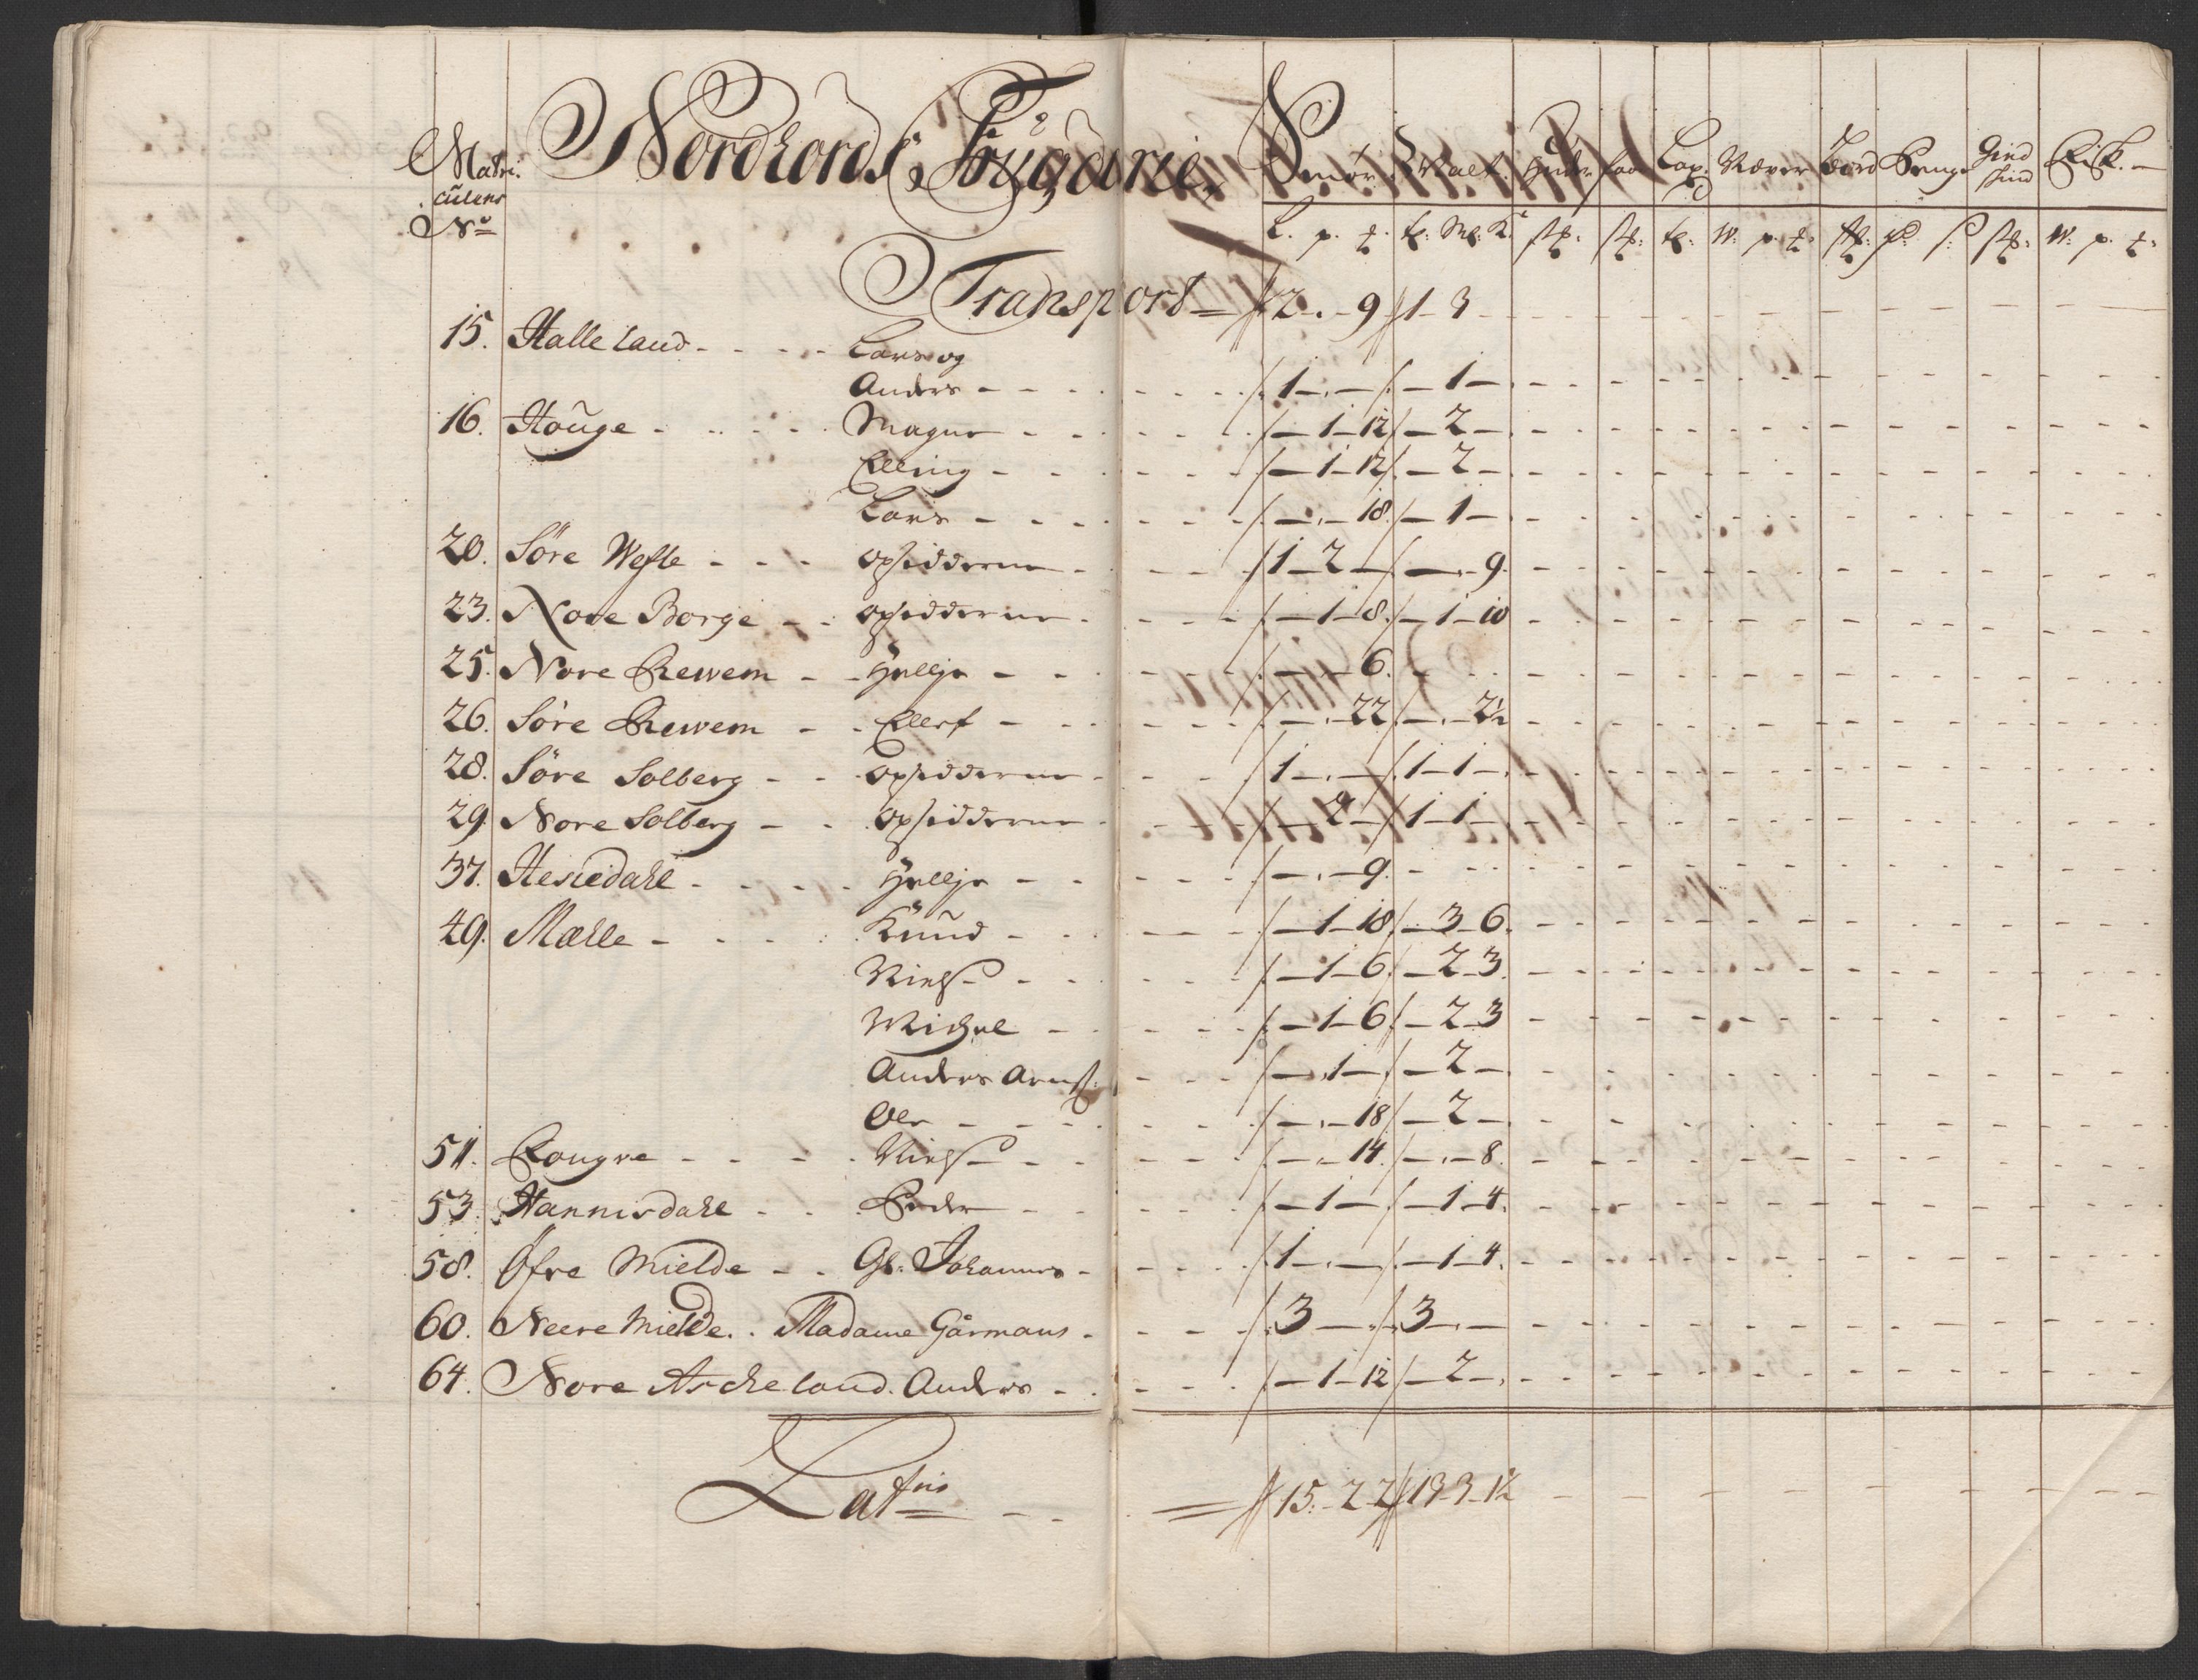 Matri: Nordhords Fougderie, Smør. Malt. Huder Lax Næver Bord Penge Gied skind Fisk.
culens
No
L. p. t. W. p. t. W. p. t.
Transport 2 - 9 1 3
15. Halleland Lars og
Anders 1 - - - 1 -
16. Houge Magne - 1 12 - 2 -
Elling - 1 12 - 2 -
Lars - - 18 - 1 -
20. Søre Wefle opsidderne 1 2 - - - 9
23. Nore Borge opsidderne - 1 8 - 1 10
25. Nore Rewem Hellje - - 6
26. Søre Rewem Ellef - - 22 - - 2½
28. Søre Solberg opsidderne 1 - - 1 1 -
29. Nore Solberg opsidderne - 2 - 1 1 -
37. Hesiedahl Hellje - - 9
49. Mæhle Knud - 1 18 - 3 6
Niels - 1 6 - 2 3
Michel - 1 6 - 2 3
Anders Arnes: - 1 - - 2 -
Ole - - 18 - 2 -
51. Rougne Niels - - 14 - - 8
53. Hannisdahl Peder - 1 - - 1 4
58. Øfre Mielde Gl: Johannes 1 - - - 1 4
60. Neere Mielde Madame Gårmans 3 - - 3 - -
64. Nore Ascheland Anders - 1 12 - 2 -
Latus 15 - 22 13 3 1½